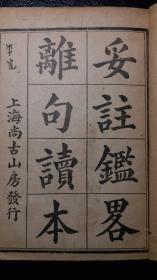 妥註鑑畧
離句讀本
上海尚古山房發行